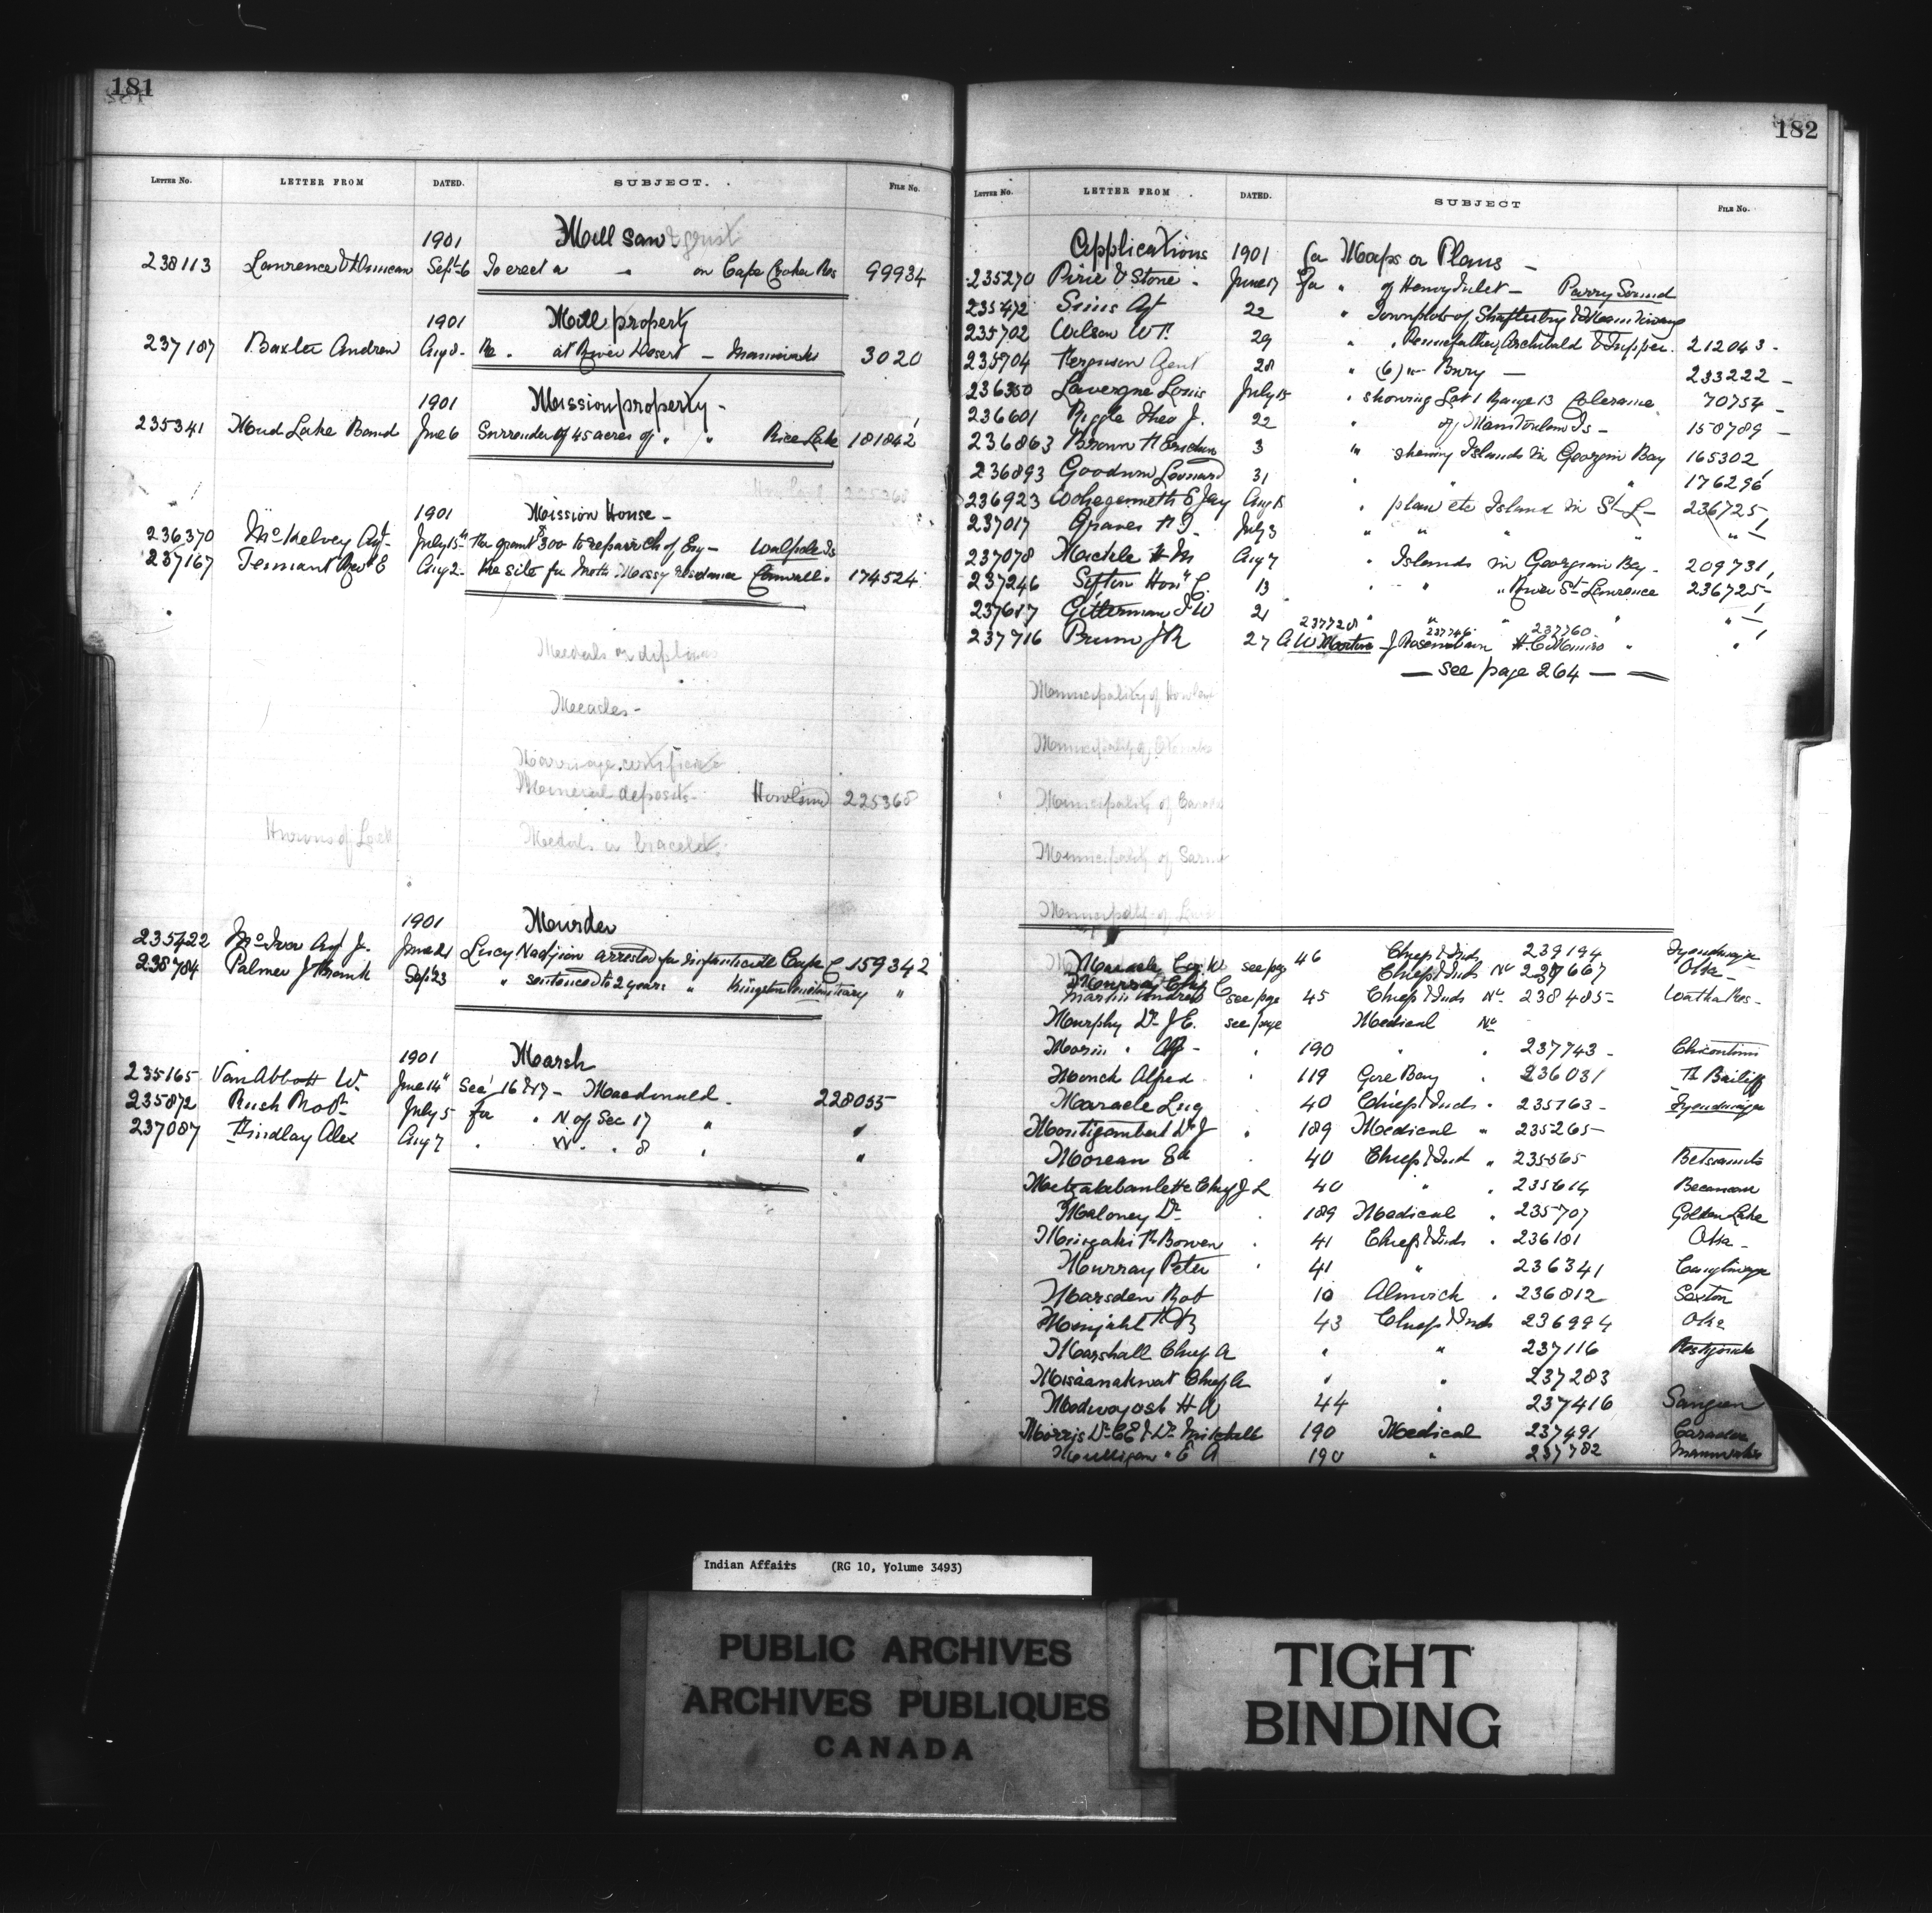 181
LETTER No. LETTER FROM DATED. SUBJECT. FILE No.
1901 Mill saw & grist
238113 Lawrence & Duncan Sept 6 To erect a " on Cape Croker Res 99934
1901 Mill property
237187 Baxter Andrew Aug 8 Re . at River Desert — Maniwaki 3020
1901 Mission property -
235341 Mud Lake Band June 6 Surrender of 45 acres of " " Rice Lake 181842
225368
1901 Mission House -
236370 McKelvey Agt July 15th the grant $300 to repair Ch of Eng - Walpole Is
237167 Tennant Revd E Aug 2 the site for Residence Cornwall Is 174524
Medals or diplomas
Measles -
Marriage certificate
Mineral deposits - Howland 225368
Hurons of
Medals or bracelets
1901 Murder
235422 McIver Agt J. June 21 Lucy Nadjion arrested for infanticide Cape C 159342
238784 Palmer J Frank Sept 23 " sentenced to 2 years " Kingston Penitentiary "
1901 Marsh
235165 VanAbbott W. June 14" Sec 16 & 17 - Macdonald - 228055
235872 Rush Robt July 5 for . N of Sec 17 " "
237087 Findlay Alex Aug 7 . W. . 8 . "
182
LETTER No. LETTER FROM DATED. SUBJECT FILE No.
Applications 1901 for Maps or Plans -
235270 Pirie & Stone . June 17 for " of Henry Inlet - Parry Sound
235472 Sims Agt 22 " Townplots of Shaftesbury &
235702 Wilson W. 29 " " Pennefather, Archibald & Tupper. 212043 -
235904 Ferguson Agent 28 " (6) " Bury - 233222 -
236350 Lavergne Louis July 15 " showing Lot 1 Range 13 Coleraine 70754 -
236601 Biggle Theo J. 22 " of Manitoulin Is - 158789 -
236863 Brown H 3 " showing Islands in Georgian Bay 165302
236893 Goodwin Leonard 31 " " " 176296
236923 E Jay Aug 15 " plan etc Island in St L - 236725 -
237017 Graves H J. July 3 " " " " " -
237078 Mackle H M Aug 7 " Islands in Georgian Bay - 209731
237246 Sifton Honl C. 13 " " " River St Lawrence 236725 -
237617 Gitterman J W 21 " " " " -
237728 237746 237760
237716 Brunn J R 27 A W Martin J Rosenbaum H. C. Munro " "
— see page 264 — —
Municipality of Howland
Municipality of
Municipality of Caradoc
Municipality of Sarnia
Municipality of
Maracle see page 46 Chiefs & Inds 239194 Tyendinaga
Chiefs & Inds No 237667 Oka -
Martin Andrew see page 45 Chiefs & Inds No 238485 - Res -
Murphy Dr J E. see page Medical No
Morin . . 190 " . 237743 - Chicoutimi
Monck Alfred . 119 Gore Bay . 236031 Th Bailiff
Maracle Lug 40 Chiefs & Inds . 235163 - Tyendinaga
Montizambert Dr J . 189 Medical " 235265 -
Moreau Ed . 40 Chiefs & Inds " 235565 Betsiamits
40 " . 235614 Becancour
Maloney Dr . 189 Medical . 235707 Golden Lake
. 41 Chiefs & Inds . 236181 Oka -
Murray Peter . 41 " 236341 Caughnawaga
Marsden Rob 10 Alnwick . 236812 Sexton
43 Chiefs & Inds 236994 Oka
Marshall Chief A " " 237116 Restigouche
Chief A " " 237283
Madwayosh H A 44 . 237416 Saugeen
Morris Dr C E & Dr Mitchell 190 Medical 237491 Caradoc
Mulligan " E A 190 " 237782 Maniwaki
Indian Affairs (RG 10, Volume 3493)
PUBLIC ARCHIVES
ARCHIVES PUBLIQUES
CANADA
TIGHT
BINDING